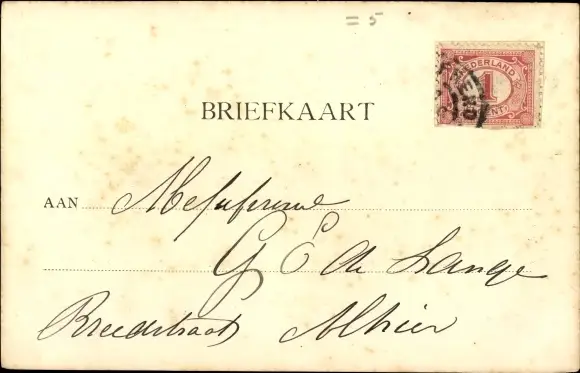 = 5
NEDERLAND
1
CENT
BRIEFKAART
AAN Mejufvrouw
G E de Lange
Breedstraat Alhier